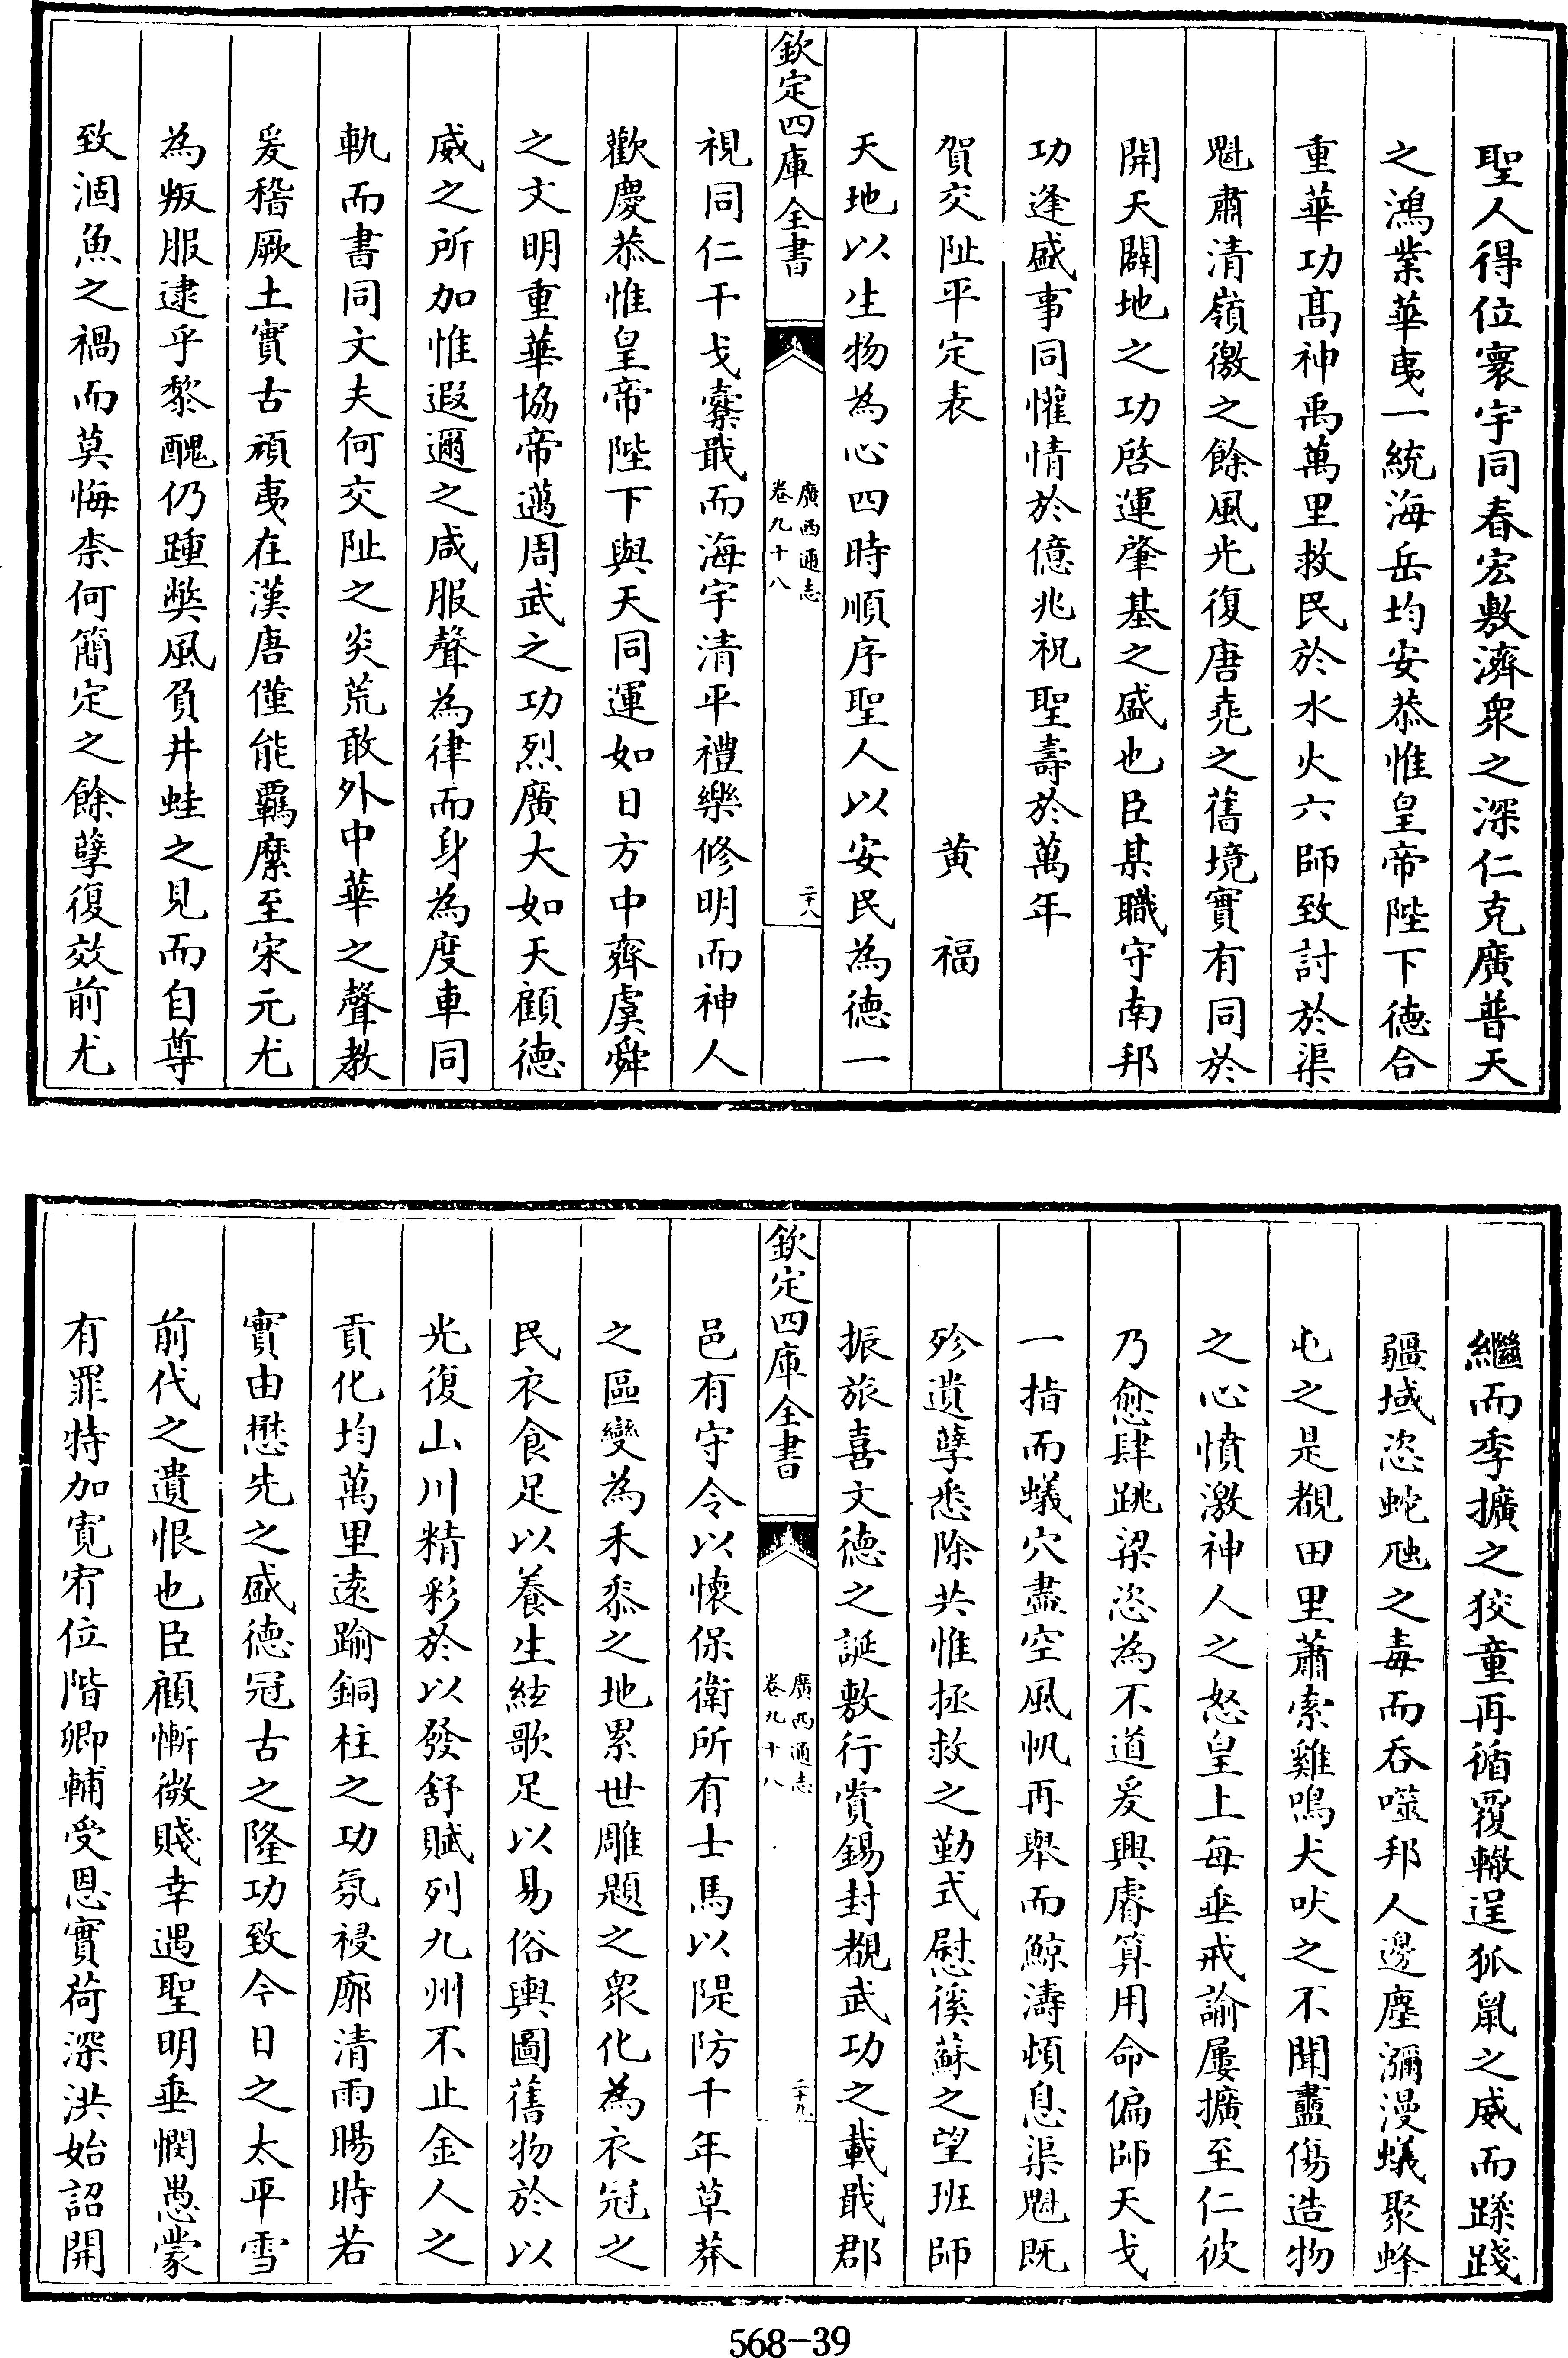 聖人得位寰宇同春宏敷濟衆之深仁克廣普天
之鴻業華夷一統海岳均安恭惟皇帝陛下德合
重華功髙神禹萬里救民於水火六師致討於渠
魁肅清嶺徼之餘風光復唐堯之舊境實有同於
開天闢地之功啓運肇基之盛也臣某職守南邦
功逢盛事同懽情於億兆祝聖壽於萬年
賀交阯平定表 黄福
天地以生物為心四時順序聖人以安民為德一
欽定四庫全書 廣西通志 卷九十八 二十八
視同仁干戈櫜戢而海宇清平禮樂修明而神人
歡慶恭惟皇帝陛下與天同運如日方中齊虞舜
之文明重華協帝邁周武之功烈廣大如天顧德
威之所加惟遐邇之咸服聲為律而身為度車同
軌而書同文夫何交阯之炎荒敢外中華之聲教
爰稽厥土實古頑夷在漢唐僅能羈縻至宋元尤
為叛服逮乎黎醜仍踵弊風負井蛙之見而自尊
致涸魚之禍而莫悔柰何簡定之餘孽復效前尤
繼而季擴之狡童再循覆轍逞狐鼠之威而蹂踐
疆域恣蛇虺之毒而吞噬邦人邊塵瀰漫蟻聚蜂
屯之是覩田里蕭索雞鳴犬吠之不聞盡傷造物
之心憤激神人之怒皇上每垂戒諭屢擴至仁彼
乃愈肆跳梁恣為不道爰興睿算用命偏師天戈
一指而蟻穴盡空風帆再舉而鯨濤頓息渠魁既
殄遺孽悉除共惟拯救之勤式慰徯蘇之望班師
振旅喜文德之誕敷行賞錫封覩武功之載戢郡
欽定四庫全書 廣西通志 卷九十八 二十九
邑有守令以懷保衛所有士馬以隄防千年草莽
之區變為禾黍之地累世雕題之衆化為衣冠之
民衣食足以養生絃歌足以易俗輿圖舊物於以
光復山川精彩於以發舒賦列九州不止金人之
貢化均萬里遠踰銅柱之功氛祲廓清雨暘時若
實由懋先之盛德冠古之隆功致今日之太平雪
前代之遺恨也臣顧慚微賤幸遇聖明垂憫愚蒙
有罪特加寛宥位階卿輔受恩實荷深洪始詔開
568-39